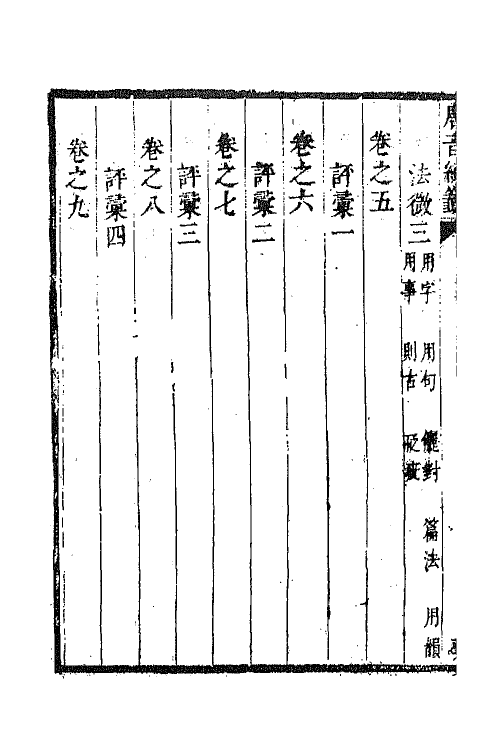 法微三
用字 用句 儷對 篇法 用韻
用事 則古
卷之五
評彚一
卷之六
評彚二
卷之七
評彚三
卷之八
評彚四
卷之九